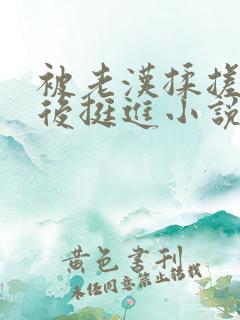 被老漢揉搓
後挺進小說
黃色書刊
未经同意禁止转载